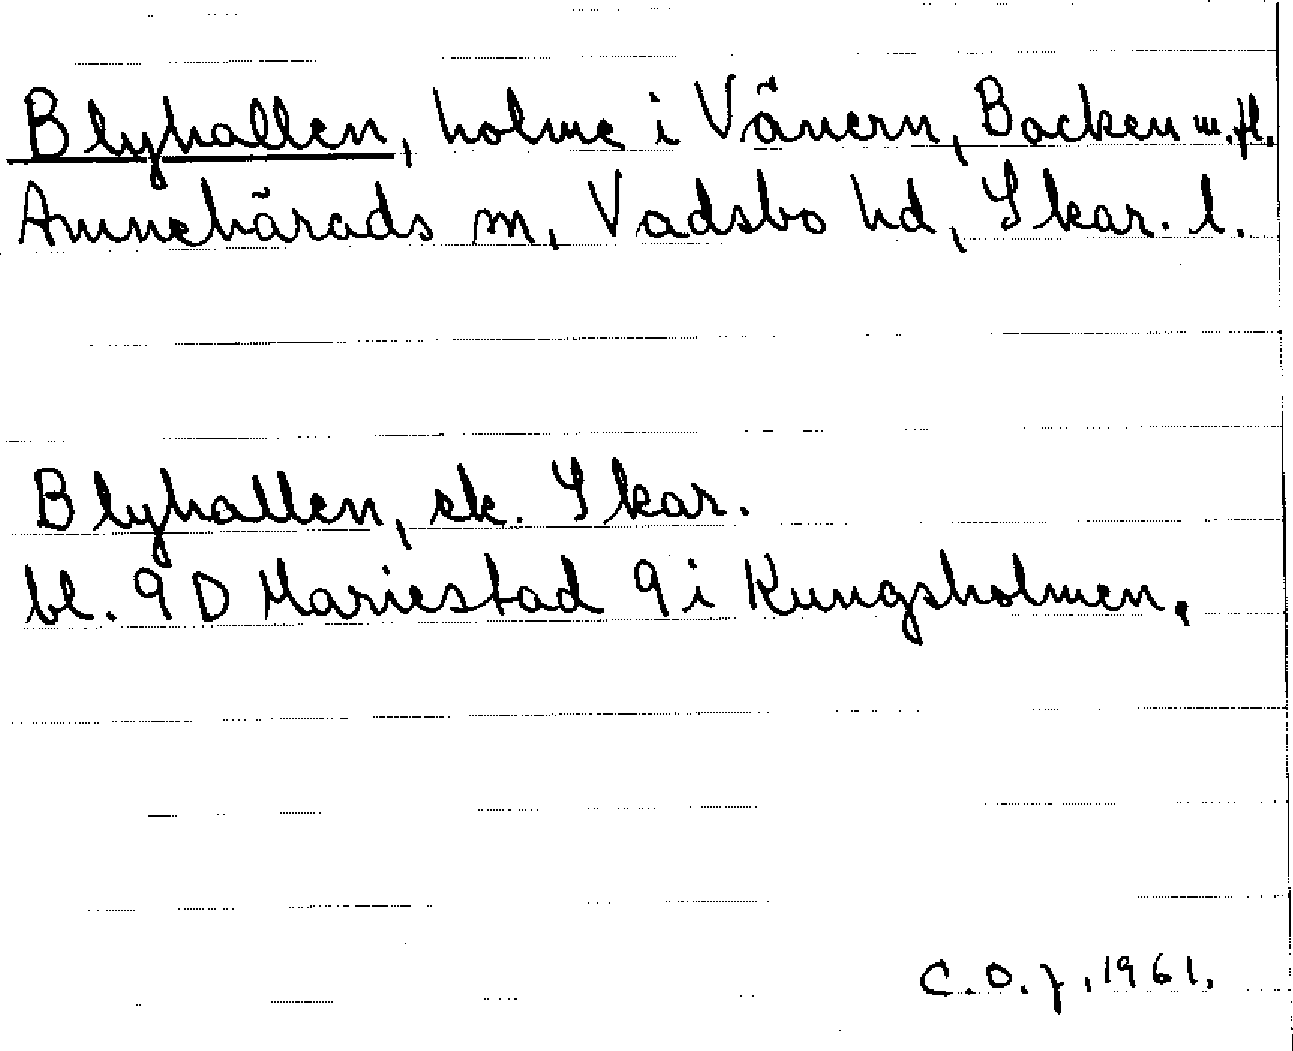 Blyhallen, holme i Vänern, Backen m. fl.
Amnehärads sn, Vadsbo hd, Skar. l.
Blyhallen, sk. Skar.
bl. 9 D Mariestad 9 i Kungsholmen.
C. O. J, 1961.